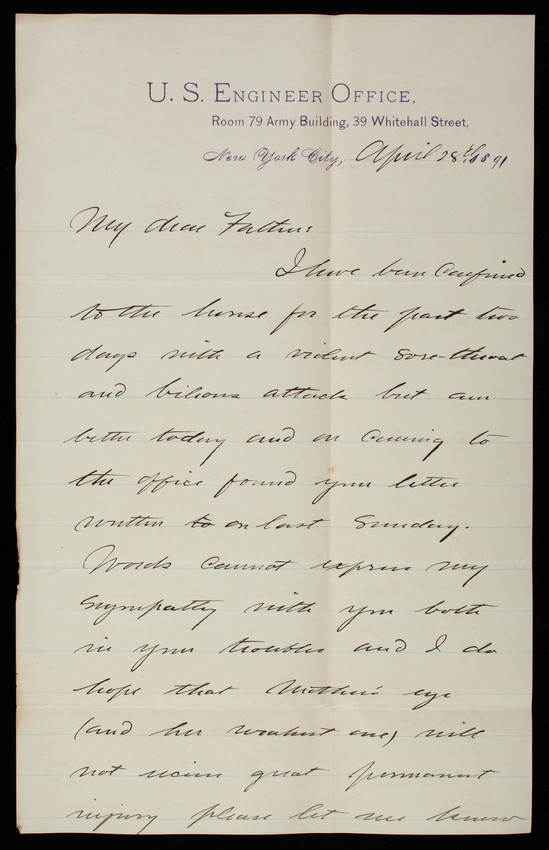 U. S. Engineer Office,
Room 79 Army Building, 39 Whitehall Street,
New York City, April 28th, 1891
My dear Father:
I have been confined
to the house for the past two
days with a violent sore-throat
and bilious attack but am
better today and on coming to
the office found your letter
written to on last Sunday.
Words cannot express my
sympathy with you both
in your troubles and I do
hope that Mother's eye
(and her weakest one) will
not receive great permanent
injury please let me know